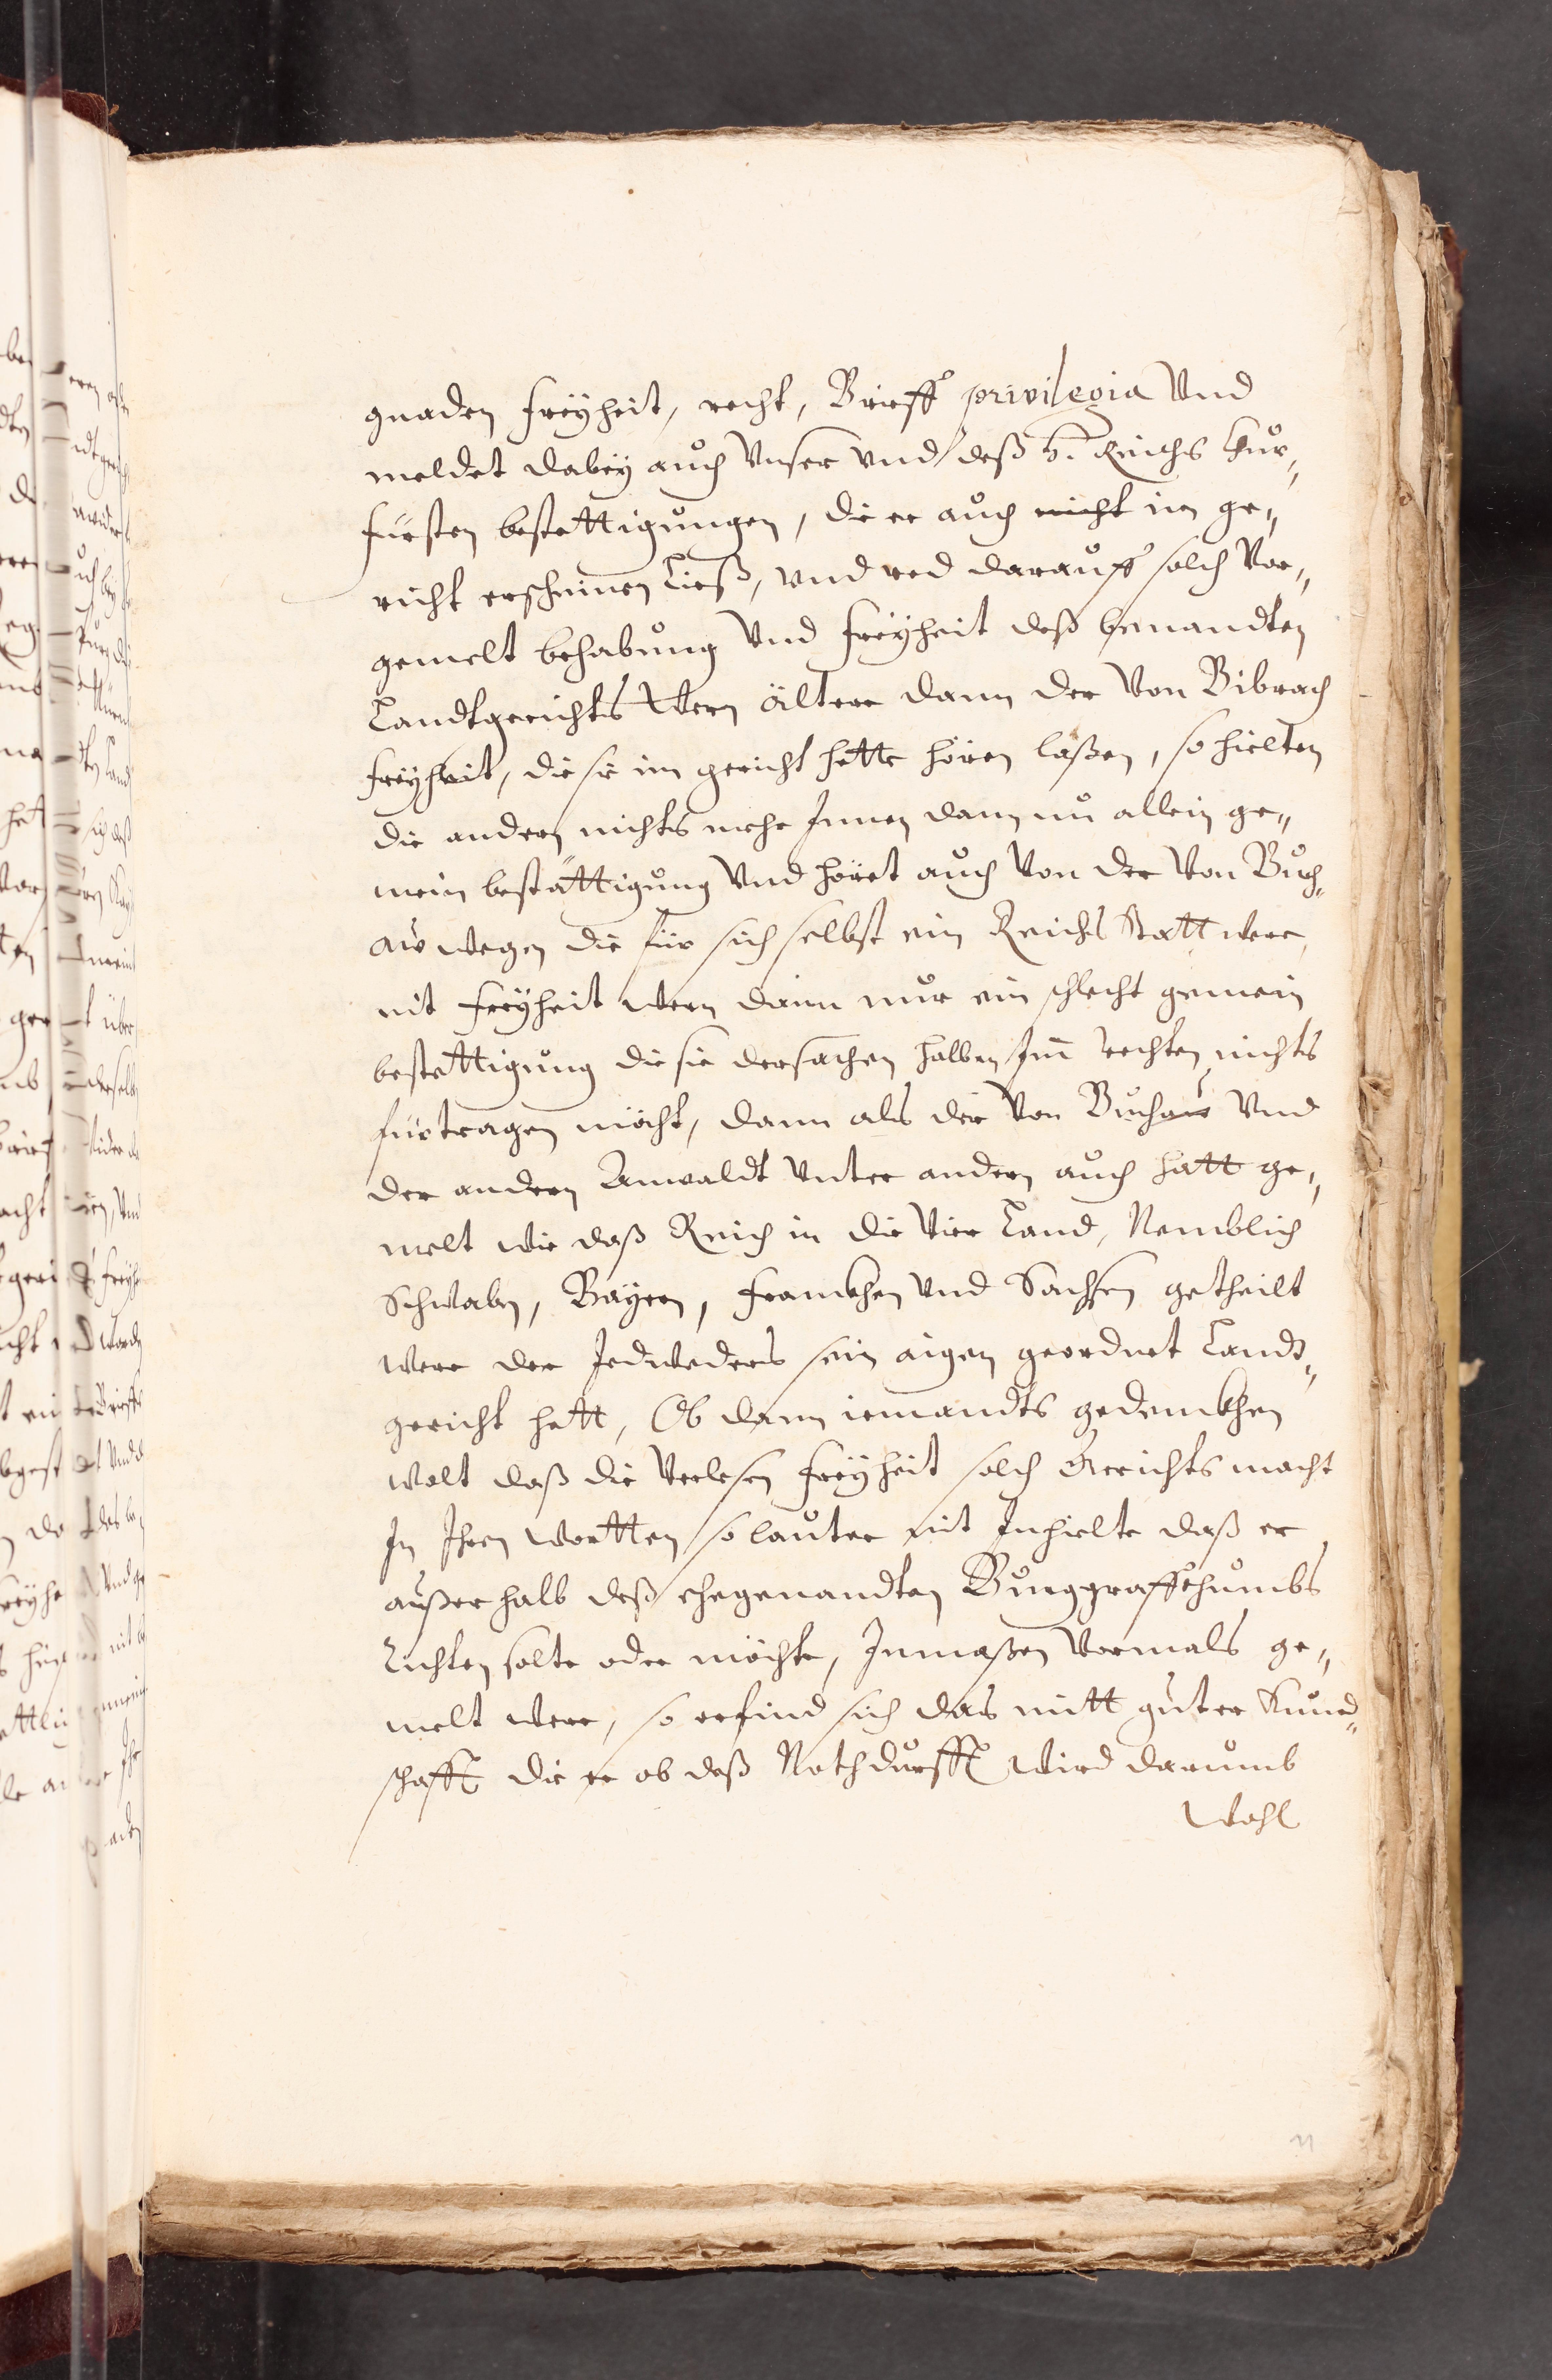 gnaden freÿheit, recht, Brieff privilegia Vnd
meldet dabeÿ auch Vnser vnd deß h. Reichs Chur„
fürsten bestettigungen, die er auch nicht im ge„
richt erscheinen ließ, vnd red darauff solch Vor„
gemelt behabung Vnd freÿheit deß benandten
Landtgerichts Wern älter dann der Von Bibrach
freÿheit, die sie im gericht hette hören laßen, so hielten
die andern nichts mehr Innen dann nu allein ge„
mein bestättigung Vnd höret auch Von der Von Buch„
aw wegen die für sich selbst ein Reichs Statt were
nit freÿheit wern dann nur ein schlecht gemein
bestettigung die sie der sachen halben Im rechten nichts
fürtragen möcht, dann als der Von Buchaw Vnd
der andern Anwaldt Vnter andern auch hatt ge„
melt wie daß Reich in die Vier Land, Nemblich
Schwaben, Baÿern, Franckhen Vnd Sachsen getheilt
were der Jedweders sein aigen geordnet Landt„
gericht hett, Ob dann iemandts gedenckhen
wolt daß die Verlesen freÿheit solch Gerichts macht
In Ihren Wortten so lauter nit Inhielte daß er
außerhalb deß ehegenandten Burggraffthumbs
richten solte oder möchte, Inmaßen Vormals ge„
melt were, so erfind sich das mitt guter Kund„
schafft die er ob deß Nothdurfft wird darumb
Wohl